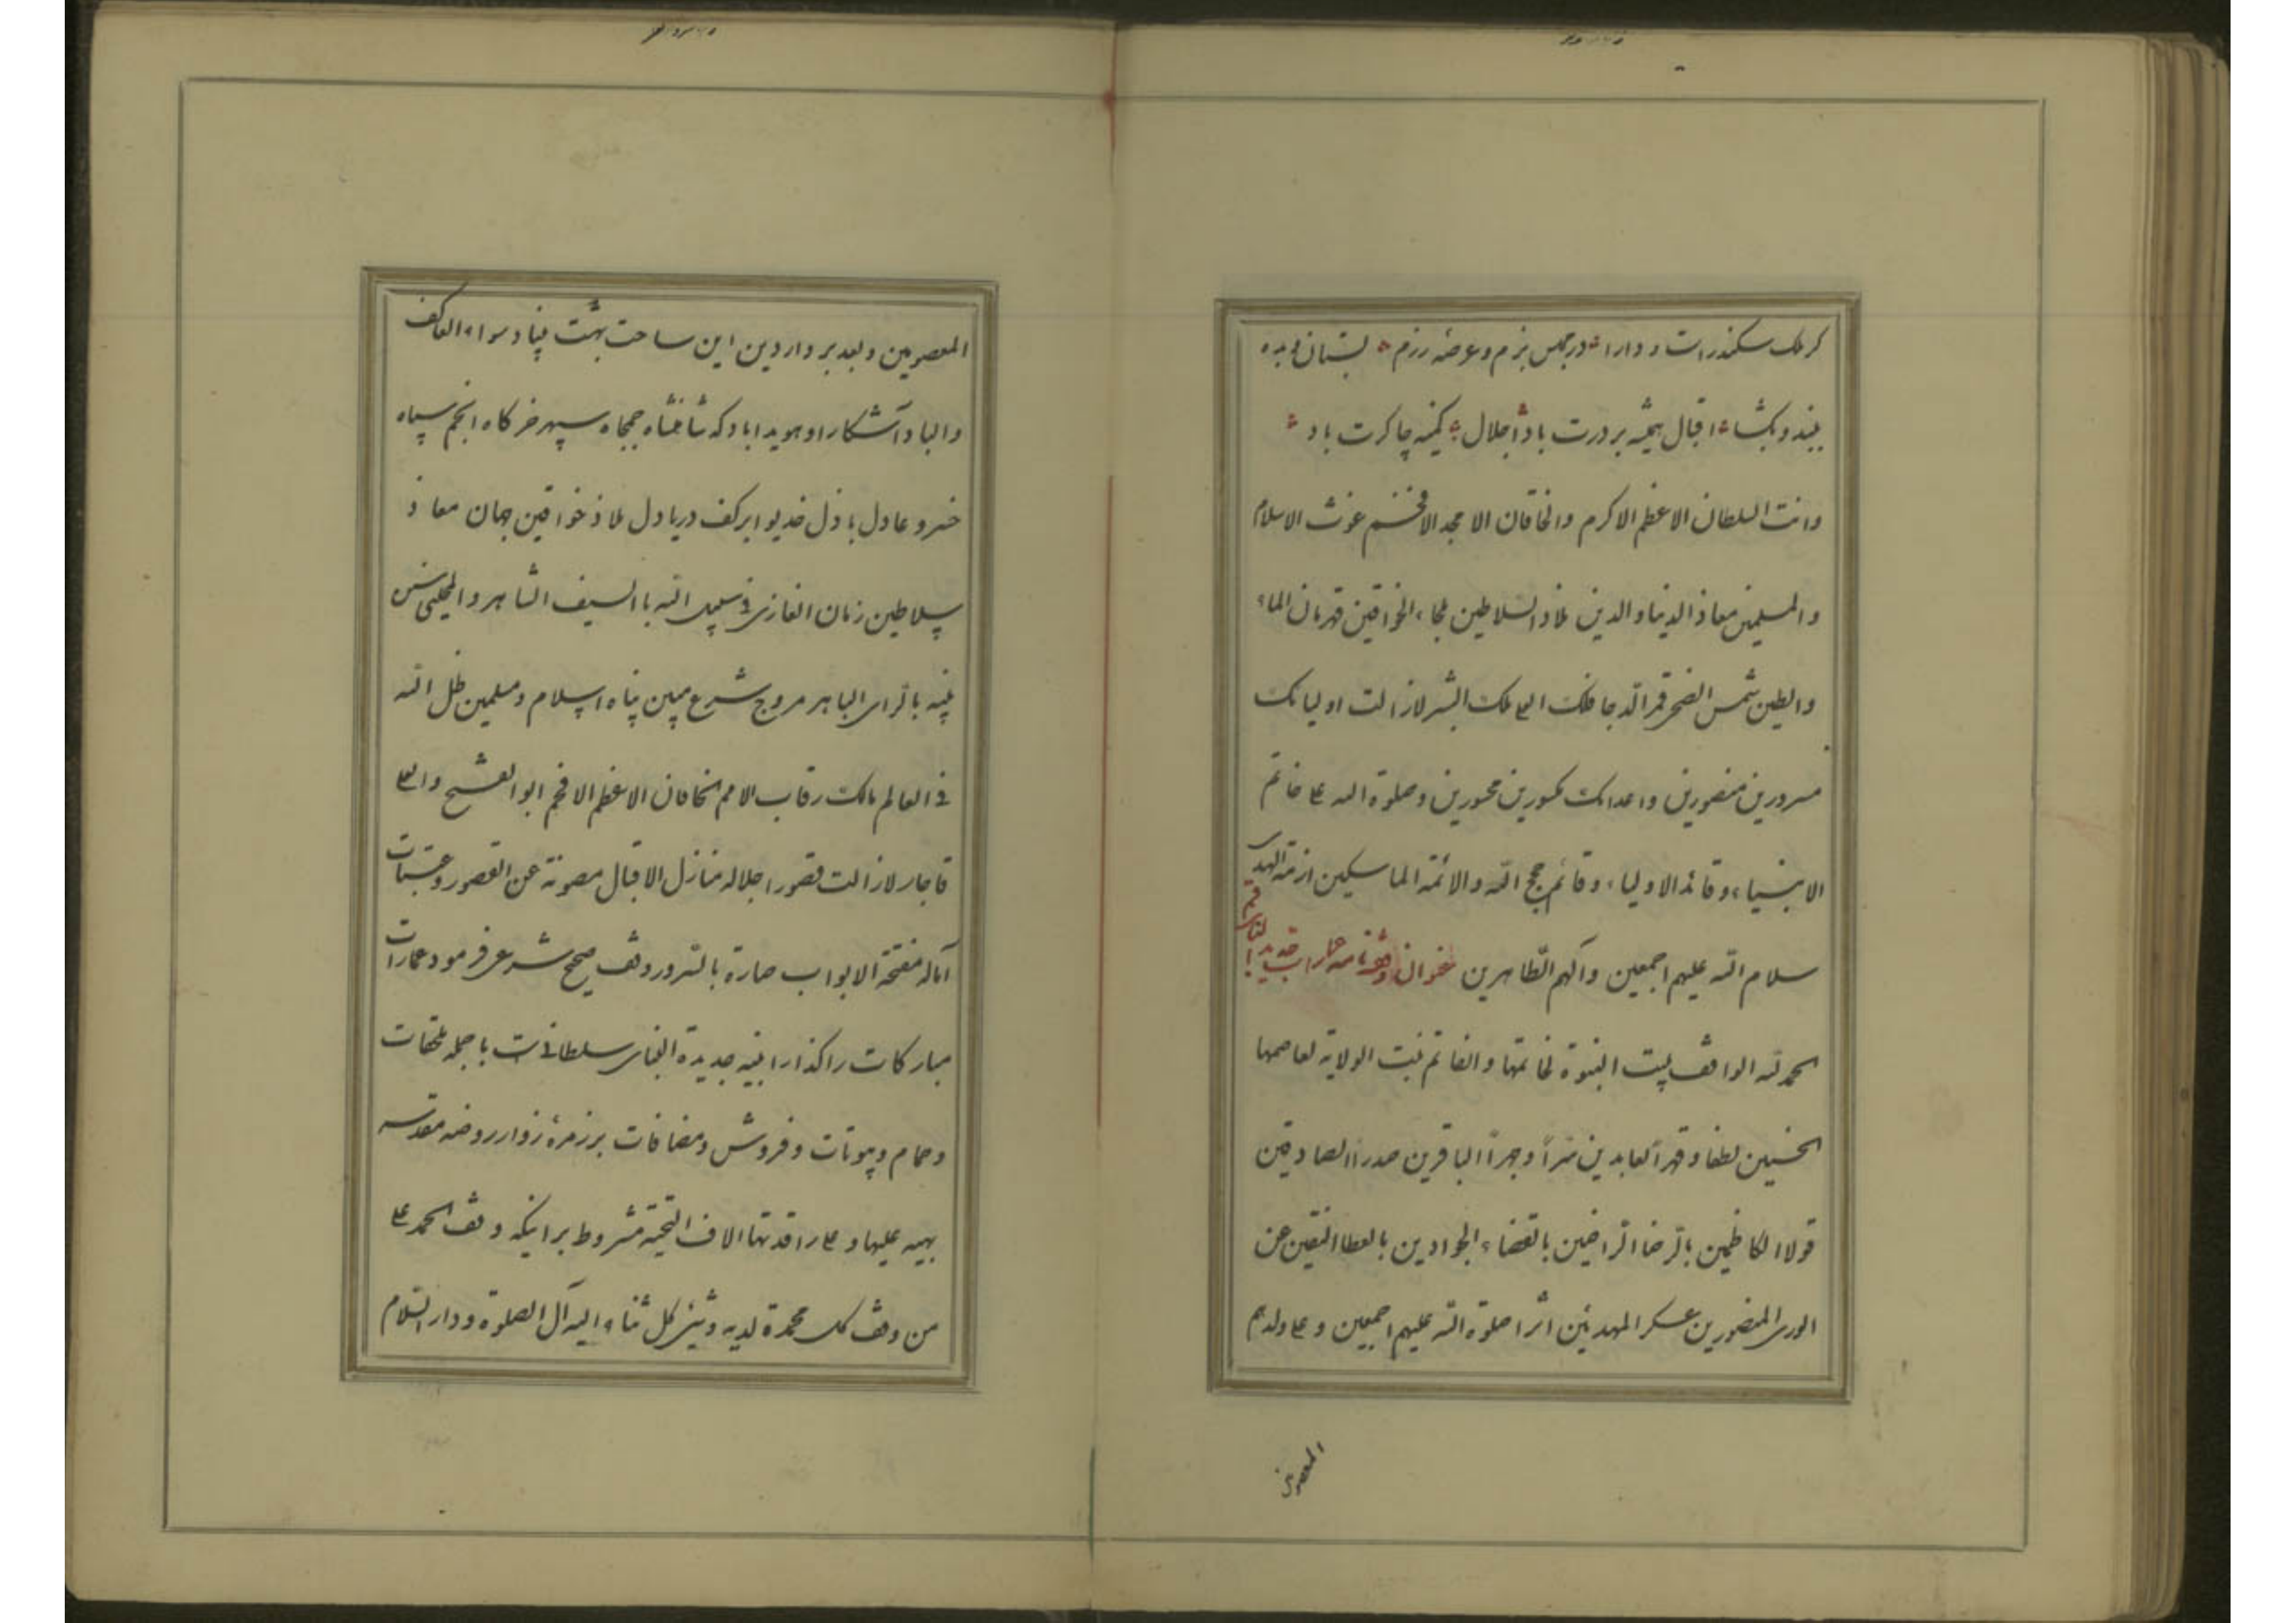 کر ملک سکندر است و دارا در مجلس بزم و عرضه رزم بستان و بده
ببند و بکشا اقبال همیشه بر درت باد اجلال کمینه چاکرت باد
وانت السلطان الاعظم الاکرم والخاقان الامجد الافخم غوث الاسلام
والمسلمین معاذ الدنیا والدین ملاذ السلاطین ملجاء الخواقین قهرمان الماء
والطین شمس الضحی قمر الدجا فلک العلی ملک البشر لازالت اولیائک
مسرورین منصورین واعدائک مکسورین محسورین وصلوة الله علی خاتم
الانبیاء وقائد الاولیاء وقائم حجج الله والائمة الماسکین ازمة الهدی
سلام الله علیهم اجمعین وآلهم الطاهرین عنوان وقفنامه عمارات جدید
الحمد لله الواقف بیت النبوة لخاتمها والفاتح بیت الولایة لعاصمها
الحسنین لطفا وقهرا العابدین سرّاً وجهراً الباقرین صدرا الصادقین
قولا الکاظمین بالرضا الراضین بالقضاء الجوادین بالعطا النقیین عن
الوری المنصورین عسکر المهدیین اثرا صلوة الله علیهم اجمعین وعلی ولدهم
المعصومین
المعصومین و بعد بر واردین این ساحت بهشت بنیاد سواء العاکف
والباد آشکارا و هویدا باد که شاهنشاه جمجاه سپهر خرکاه انجم سپاه
خسرو عادل باذل خدیو ابر کف دریا دل ملاذ خواقین جهان معاذ
سلاطین زمان الغازی فی سبیل الله با السیف الشاهر والمجلی سنن
نبیه بالرای الباهر مروج شرع مبین پناه اسلام و مسلمین ظل الله
فی العالم مالک رقاب الامم الخاقان الاعظم الافخم ابو الفتح والعلی
قاجار لازالت قصور اجلاله منازل الاقبال مصونة عن القصور وعتبات
آماله مفتحة الابواب صارة بالسرور وقف صحیح شرعی فرمود عمارات
مبارکات راکذار ابنیه جدیدة البنای سلطانیست با جمله ملحقات
و حمام و بیوتات و فروش و مضافات بر زمرهٔ زوار روضه مقدسه
بهیه علیها و علی راقدتها الاف التحیة مشروط بر اینکه وقف الحمد علی
من وقف کل محمدة لدیه وثنی کل ثناء الیه آل الصلوة ودار السلام